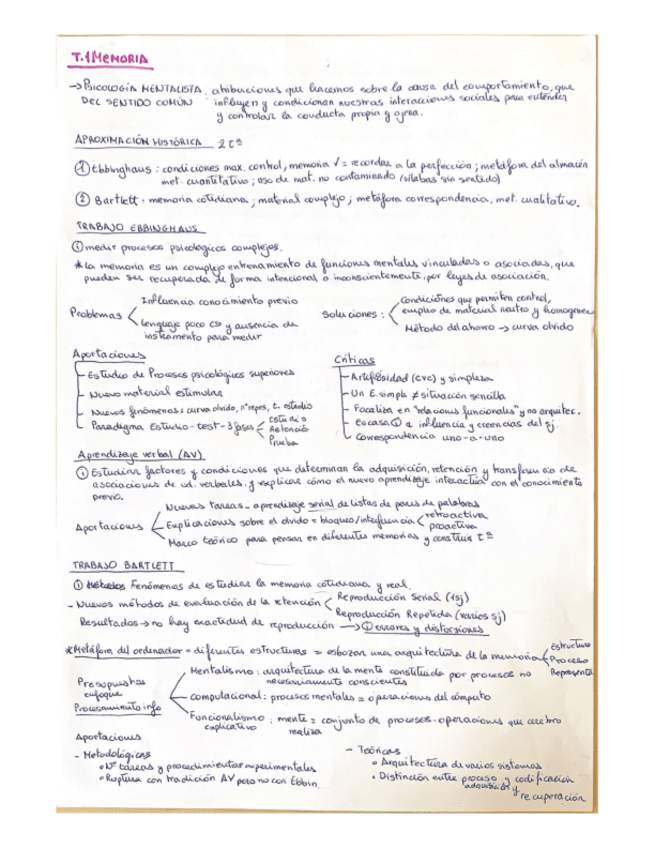 T.1 MEMORIA
→ PSICOLOGÍA MENTALISTA DEL SENTIDO COMÚN : atribuciones que hacemos sobre la causa del comportamiento, que
influyen y condicionan nuestras interacciones sociales para entender
y controlar la conducta propia y ajena.
APROXIMACIÓN HISTÓRICA 2 tªs
① Ebbinghaus : condiciones max. control, memoria √ = recordar a la perfección ; metáfora del almacén
met. cuantitativo ; uso de mat. no contaminado (sílabas sin sentido)
② Bartlett : memoria cotidiana ; material complejo ; metáfora correspondencia, met. cualitativo.
TRABAJO EBBINGHAUS
① medir procesos psicológicos complejos.
* La memoria es un complejo entrenamiento de funciones mentales vinculadas o asociadas, que
pueden ser recuperada de forma intencional o inconscientemente, por leyes de asociación.
Problemas
Influencia conocimiento previo
Lenguaje poco y ausencia de
instrumento para medir
Soluciones :
Condiciones que permiten control,
empleo de material neutro y homogeneo
Método del ahorro → curva olvido
Aportaciones
- Estudio de Procesos psicológicos superiores
- Nuevo material estimular
- Nuevos fenómenos : curva olvido, nº repes, t. estudio
- Paradigma Estudio - test - 3 fases
Estudio
Retención
Prueba
Críticas
- Artificiosidad (CVC) y simpleza
- Un E. simple ≠ situación sencilla
- Focaliza en "relaciones funcionales" y no arquitec.
- Escasa ① a influencia y creencias del sj.
- Correspondencia uno-a-uno
Aprendizaje verbal (AV)
① Estudiar factores y condiciones que determinan la adquisición, retención y transferencia de
asociaciones de ud. verbales. y explicar cómo el nuevo aprendizaje interactúa con el conocimiento
previo.
Aportaciones
Nuevas tareas - aprendizaje serial de listas de pares de palabras
Explicaciones sobre el olvido = bloqueo/interferencia
retroactiva
proactiva
Marco teórico para pensar en diferentes memorias y construir tª
TRABAJO BARTLETT
① Métodos Fenómenos de estudiar la memoria cotidiana y real.
- Nuevos métodos de evaluación de la retención
Reproducción Serial (1sj)
Reproducción Repetida (varios sj)
Resultados → no hay exactitud de reproducción → ① errores y distorsiones
* Metáfora del ordenador = diferentes estructuras = esbozar una arquitectura de la memoria
Estructura
Proceso
Represent.
Presupuestos
enfoque
Procesamiento info
Mentalismo : arquitectura de la mente constituida por procesos no
necesariamente conscientes
Computacional : procesos mentales = operaciones del cómputo
Funcionalismo explicativo : mente = conjunto de procesos-operaciones que cerebro
realiza
Aportaciones
- Metodológicas
• Nº tareas y procedimientos experimentales
• Ruptura con tradición AV pero no con Ebbin.
- Teóricas
• Arquitectura de varios sistemas
• Distinción entre proceso y codificación
adquisición y
recuperación